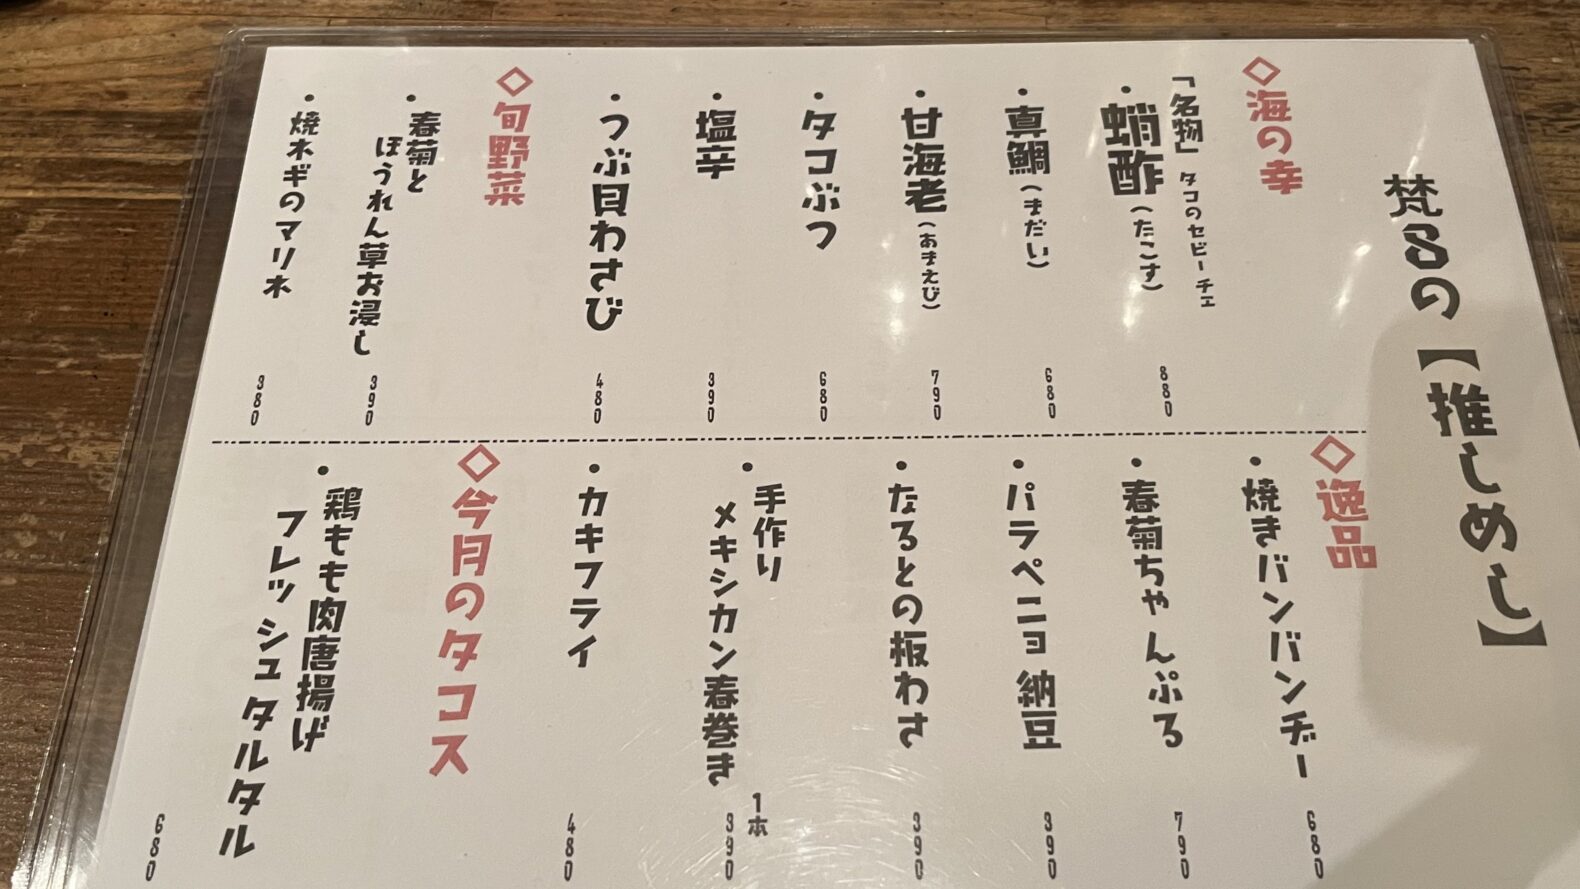 梵8の【推しめし】
◇海の幸
「名物」タコのセビーチェ
・蛸酢(たこす) 880
・真鯛(まだい) 680
・甘海老(あまえび) 790
・タコぶつ 680
・塩辛 390
・つぶ貝わさび 480
◇旬野菜
・春菊と
ほうれん草お浸し 390
・焼ネギのマリネ 380
◇逸品
・焼きバンバンヂー 680
・春菊ちゃんぷる 790
・パラペニョ納豆 390
・なるとの板わさ 390
・手作り
メキシカン春巻き 1本 390
・カキフライ 480
◇今月のタコス
・鶏もも肉唐揚げ
フレッシュタルタル 680